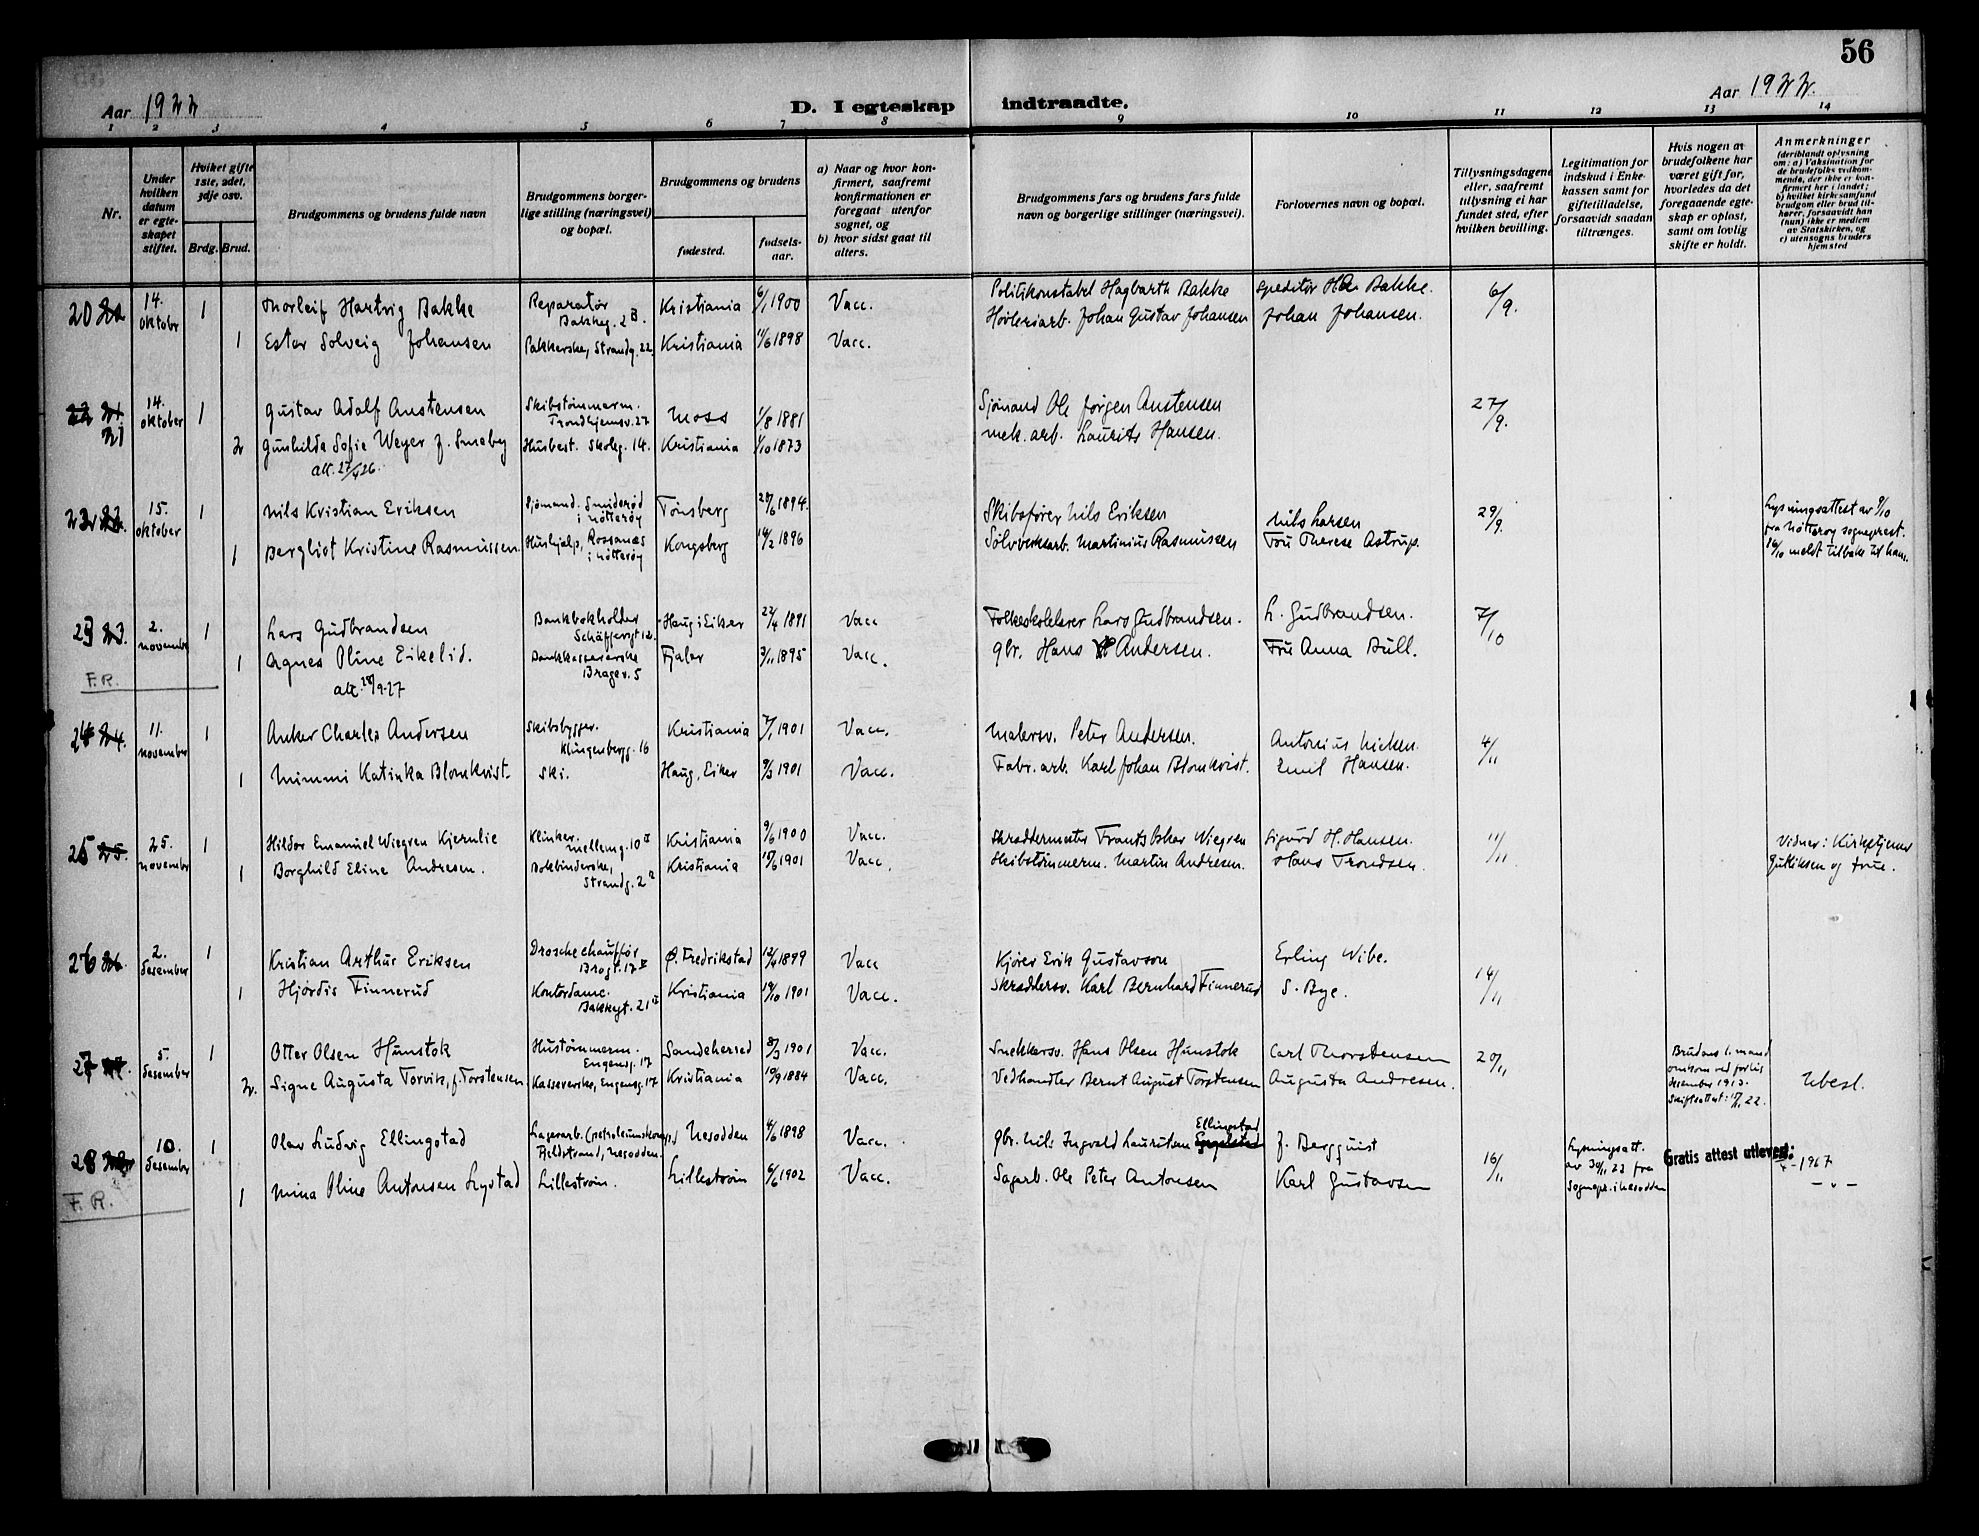 56
Aar 1922
D. I egteskap indtraadte.
Aar 1922.
1 2 3 4 5 6 7 8 9 10 11 12 13 14
Nr.
Under hvilken datum er egteskapet stiftet.
Hvilket gifte 1ste, 2det, 3dje osv.
Brdg. Brud.
Brudgommens og brudens fulde navn
Brudgommens borgerlige stilling (næringsvei) og bopæl.
Brudgommens og brudens
fødested.
fødselsaar.
a) Naar og hvor konfirmert, saafremt konfirmationen er foregaat utenfor sognet, og
b) hvor sidst gaat til alters.
Brudgommens fars og brudens fars fulde navn og borgerlige stillinger (næringsvei).
Forlovernes navn og bopæl.
Tillysningsdagene eller, saafremt tillysning ei har fundet sted, efter hvilken bevilling.
Legitimation for indskud i Enkekassen samt for giftetilladelse, forsaavidt saadan tiltrænges.
Hvis nogen av brudefolkene har været gift før, hvorledes da det foregaaende egteskap er opløst, samt om lovlig skifte er holdt.
Anmerkninger
(deriblandt oplysning om: a) Vaksination for de brudefolks vedkommende, der ikke er konfirmert her i landet; b) hvilket kirkesamfund brudgom eller brud tilhører, forsaavidt han (hun) ikke er medlem av Statskirken, og c) utensogns bruders hjemsted
20 14. oktober 1 Thorleif Hartvig Bakke Reparatør Bakkeg. 2 B. Kristiania 6/1 1900 Vacc. Politikonstabel Hagbarth Bakke Speditør Bakke. 6/9.
1 Ester Solveig Johansen Pakkerske, Strandg. 22. Kristiania 11/6 1898 Vacc. Høvleriarb. Johan Gustav Johansen Johan Johansen.
21 14. oktober 1 Gustav Adolf Austensen Skibstømmerm. Trondhjemsv. 27 Moss 1/8 1881 Sjømand Ole Jørgen Austensen 27/9.
2 Gunhilda Sofie Weyer f. Smeby Husbest. Skoleg. 14. Kristiania 1/10 1873 mek. arb. Laurits Hansen.
att. 27/4 26.
22 15. oktober 1 Nils Kristian Eriksen Sjømand. Smiderød i Nøtterøy Tønsberg 28/6 1894. Skibsfører Nils Eriksen Nils Larsen 29/9. Lysningsattest av 9/10 fra Nøtterøy sogneprest. 16/10 meldt tilbake til ham.
1 Bergliot Kristine Rasmussen Hushjelp, Rossanæs i Nøtterøy Kongsberg 14/2 1896 Sølvverksarb. Martinius Rasmussen Fru Therese Astrup.
23 2. november 1 Lars Gudbrandsen Bankbokholder Schäffersgt 12. Haug i Eiker 22/4 1891 Vacc Folkeskolelærer Lars Gudbrandsen. L. Gudbrandsen. 7/10
1 Agnes Oline Eikelid. Bankkassererske Bragev. 5 Fjaler 3/11 1895 Vacc. gbr. Hans Andersen. Fru Anna Bull.
F. R.
att. 28/9-27
24 11. november 1 Anker Charles Andersen Skibsbygger. Klingenbergg. 16 Kristiania 7/1 1901 Vacc. Malersv. Peter Andersen. Antonius Nielsen. 4/11
1 Mimmi Katinka Blomkvist. Ski. Haug, Eiker 9/3 1901 Vacc. Fabr. arb. Karl Johan Blomkvist. Emil Hansen.
25 25. november 1 Hildor Emanuel Wiegren Kjernlie Klinker. Mellemg. 10 II Kristiania 9/6 1900 Vacc. Skræddermester Frants Oskar Wiegren Sigurd H. Hansen. 11/11 Vidner: Kirketjener Gulliksen og frue.
1 Borghild Eline Andresen. Bokbinderske, Strandg. 2 Kristiania 18/6 1901 Vacc. Skibstømmerm. Martin Andresen. Hans Trondsen.
26 2. desember 1 Kristian Arthur Eriksen Droschechauffør Brogt. 17 Ø. Fredrikstad 12/4 1899 Vacc Kjører Erik Gustavson Erling Wibe. 14/11
1 Hjørdis Finnerud Kontordame. Bakkegt. 21 II Kristiania 19/10 1901 Vacc. Skræddersv. Karl Bernhard Finnerud S. Bye.
27 5. desember 1 Otter Olsen Hunstok Hustømmerm. Engensg. 17 Sandeherred 8/3 1901 Vacc. Snekkersv. Hans Olsen Hunstok Carl Thorstensen 20/11 Brudens 1. mand omkom ved forlis desember 1913. Skifteattest: 22.
2. Signe Augusta Torvik, f. Torstensen Kassererske, Engensg. 17 Kristiania 10/9 1884 Vacc. Vedhandler Bernt August Torstensen Augusta Andresen. Ubesl.
28 10. desember 1 Olav Ludvig Ellingstad Lagerarb. (petroleumskomp.) Fjeldstrand, Nesodden. Nesodden 4/6 1898 Vacc. Gbr. Nils Ingvald Lauritsen Ellingstad J. Bergquist 16/11 Lysningsatt. av 30/11 22 fra Sognepr. i Nesodden Gratis attest utlevert: 1967
1 Mina Oline Antonsen Lystad Lillestrøm. Lillestrøm 6/6 1902 Vacc. Sagarb. Ole Peter Antonsen Karl Gustavsen - " -
F. R.